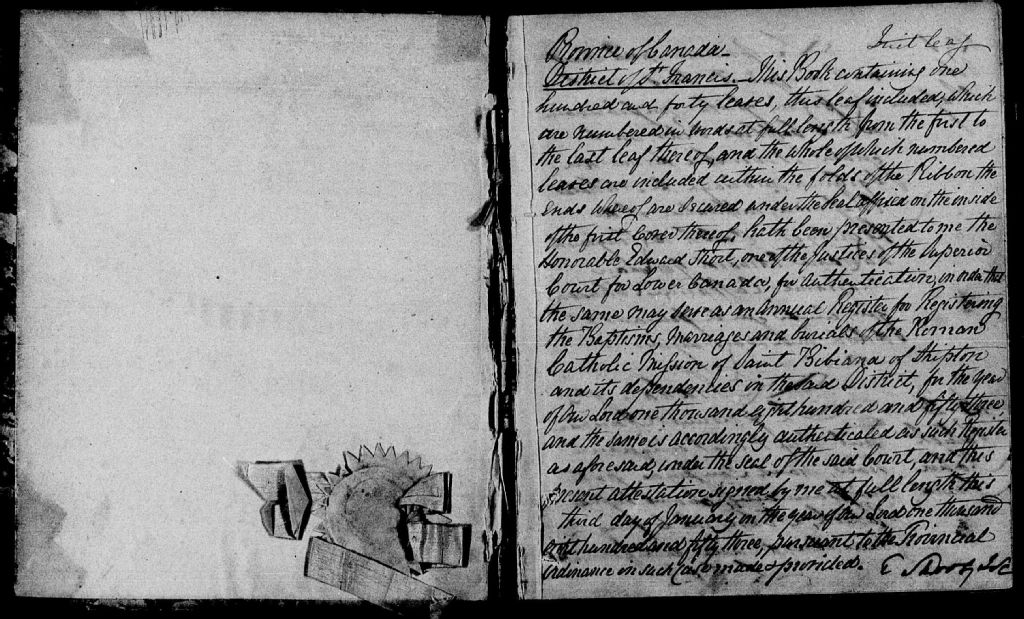 First leaf
Province of Canada
District of St. Francis. This Book containing one
hundred and forty leaves, this leaf included, which
are numbered in words at full length from the first to
the last leaf thereof, and the whole of which numbered
leaves are included within the folds of the Ribbon the
Ends whereof are secured under the Seal affixed on the inside
of the first Cover thereof, hath been presented to me the
Honorable Edward Short, one of the Justices of the Superior
Court for Lower Canada, for authentication, in order that
the same may serve as an Annual Register for Registering
the Baptisms, Marriages and burials of the Roman
Catholic Mission of Saint Bibiana of Shipton
and its dependencies in the said District, for the year
of Our Lord one thousand eight hundred and fifty three
and the same is accordingly authenticated as such Register
as aforesaid, under the seal of the said Court, and this
present attestation signed by me at full length this
third day of January in the year of Our Lord one thousand
eight hundred and fifty three, pursuant to the Provincial
Ordinance in such Case made & provided. E Short J.S.C.